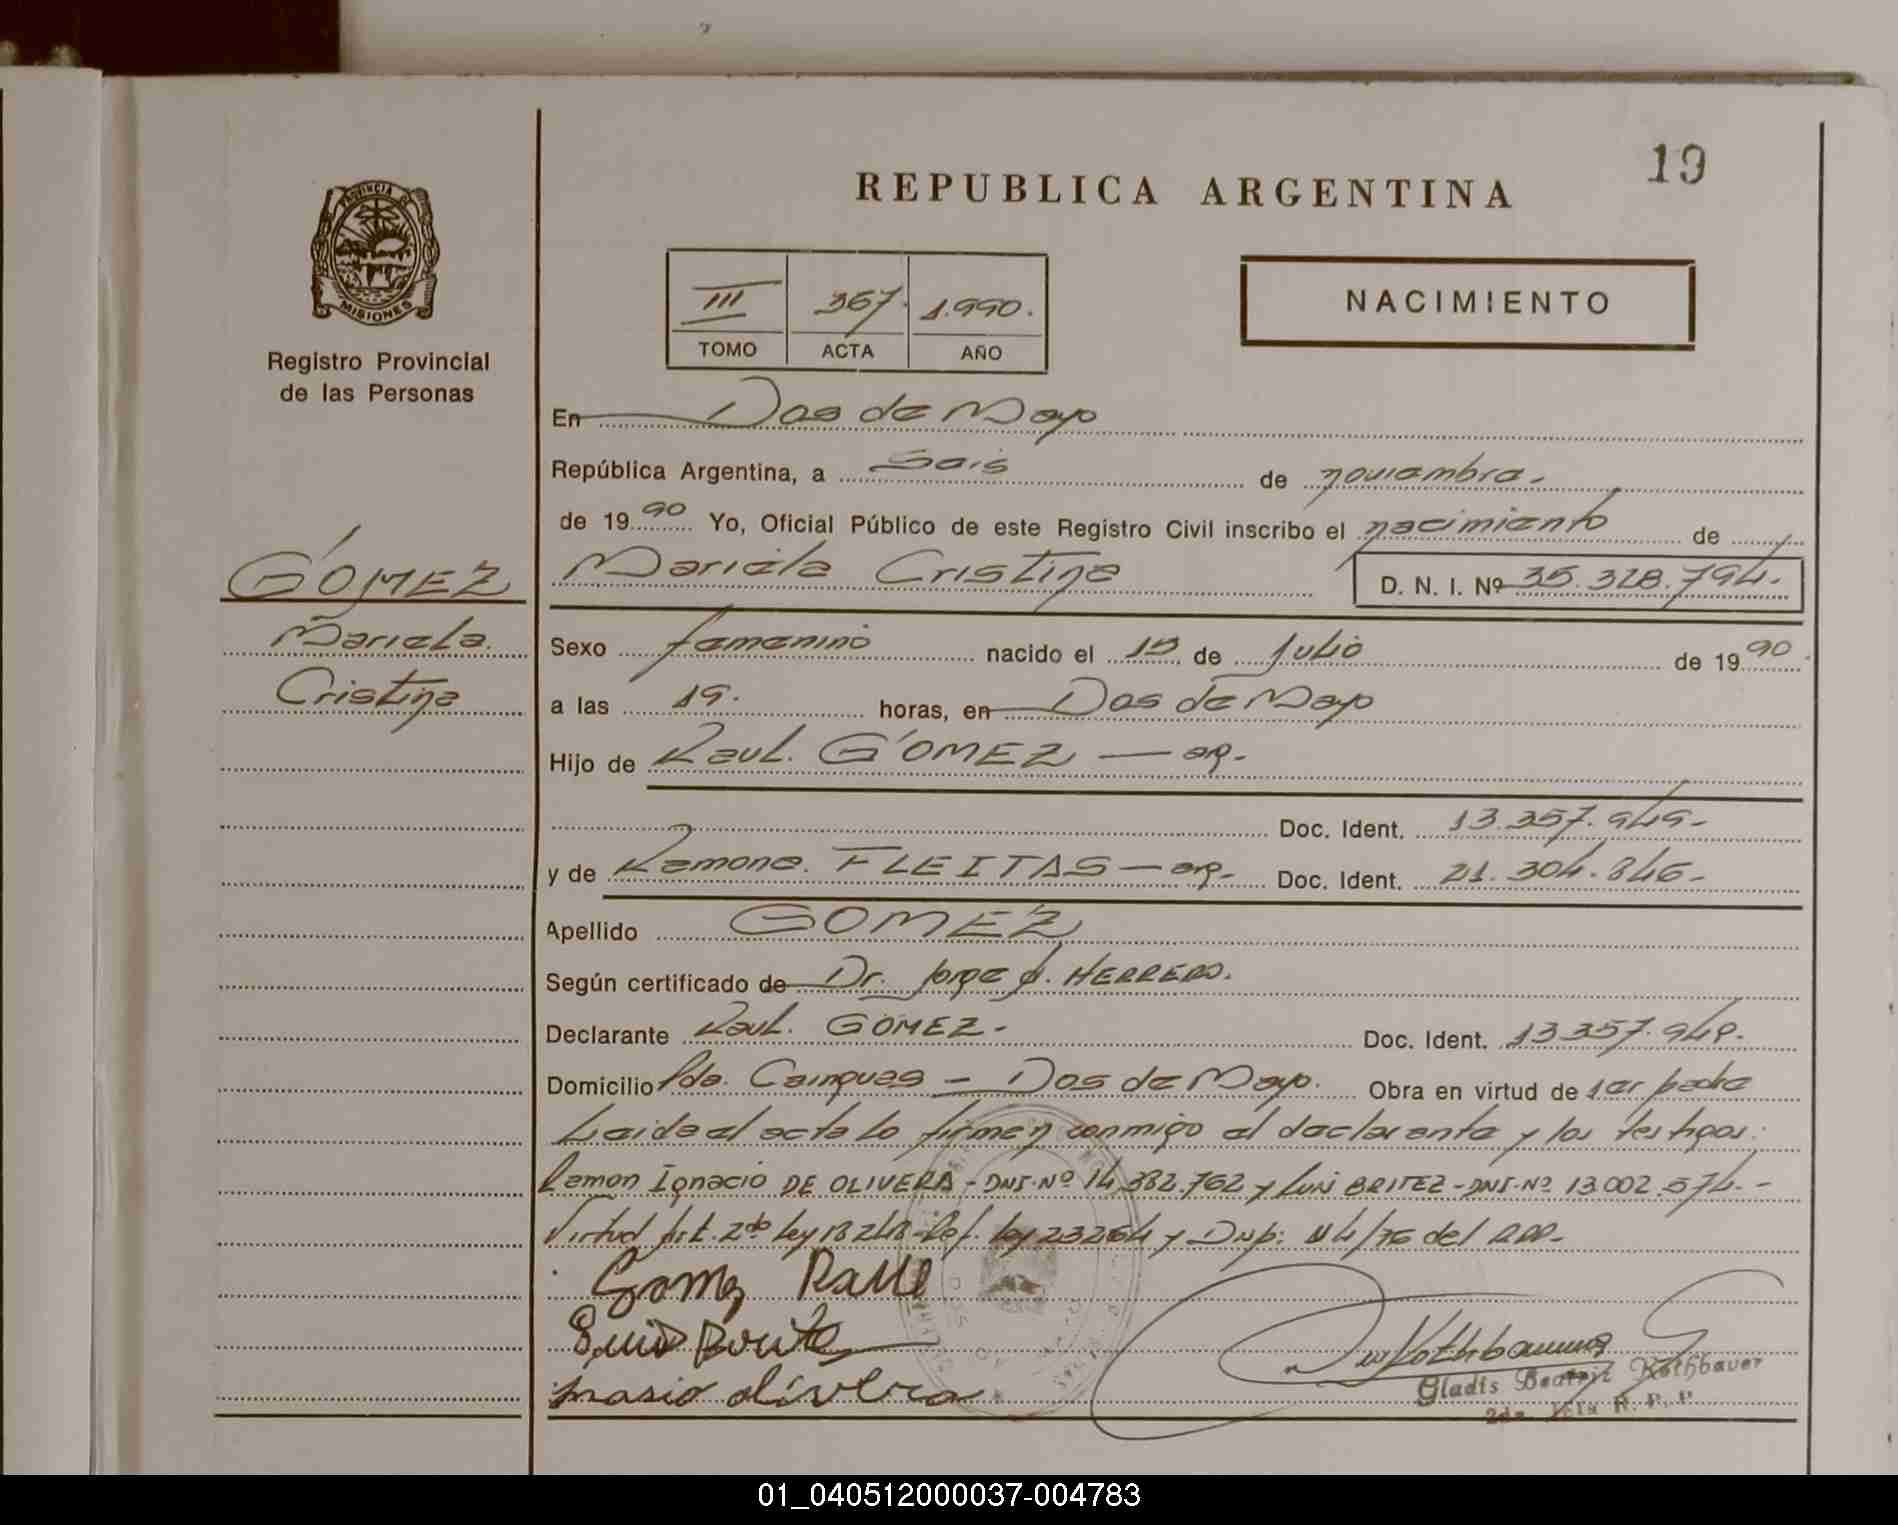 19
REPUBLICA ARGENTINA
PROVINCIA DE
MISIONES
Registro Provincial
de las Personas
III 367. 1.990.
TOMO ACTA AÑO
NACIMIENTO
En Dos de Mayo
República Argentina, a Seis de noviembre.
de 1990 Yo, Oficial Público de este Registro Civil inscribo el nacimiento de
Mariela Cristina D. N. I. Nº 35.328.794.
GÓMEZ
Mariela
Cristina
Sexo femenino nacido el 15 de Julio de 1990.
a las 19. horas, en Dos de Mayo
Hijo de Raul. GÓMEZ — ar.
Doc. Ident. 13.357.949.
y de Ramona. FLEITAS — ar. Doc. Ident. 21.304.846.
Apellido GOMEZ
Según certificado de Dr. Jorge J. HERRERO.
Declarante Raul. GOMEZ. Doc. Ident. 13.357.949.
Domicilio Pdo. Cainguas — Dos de Mayo. Obra en virtud de ser padre
Leida el acta lo firmen conmigo el declarante y los testigos:
Ramon Ignacio DE OLIVERA - DNI. Nº 14.382.762 y Luis BRITEZ - DNI. Nº 13.002.574. -
Virtud Art. 2do Ley 18248 - Ref. Ley 23264 y Disp: Nº 4/76 del RPP.
Gomez Raul
Luis Britez
olivera
Gladis Beatriz Rothbauer
2da. Jefa R. P. P.
01_040512000037-004783